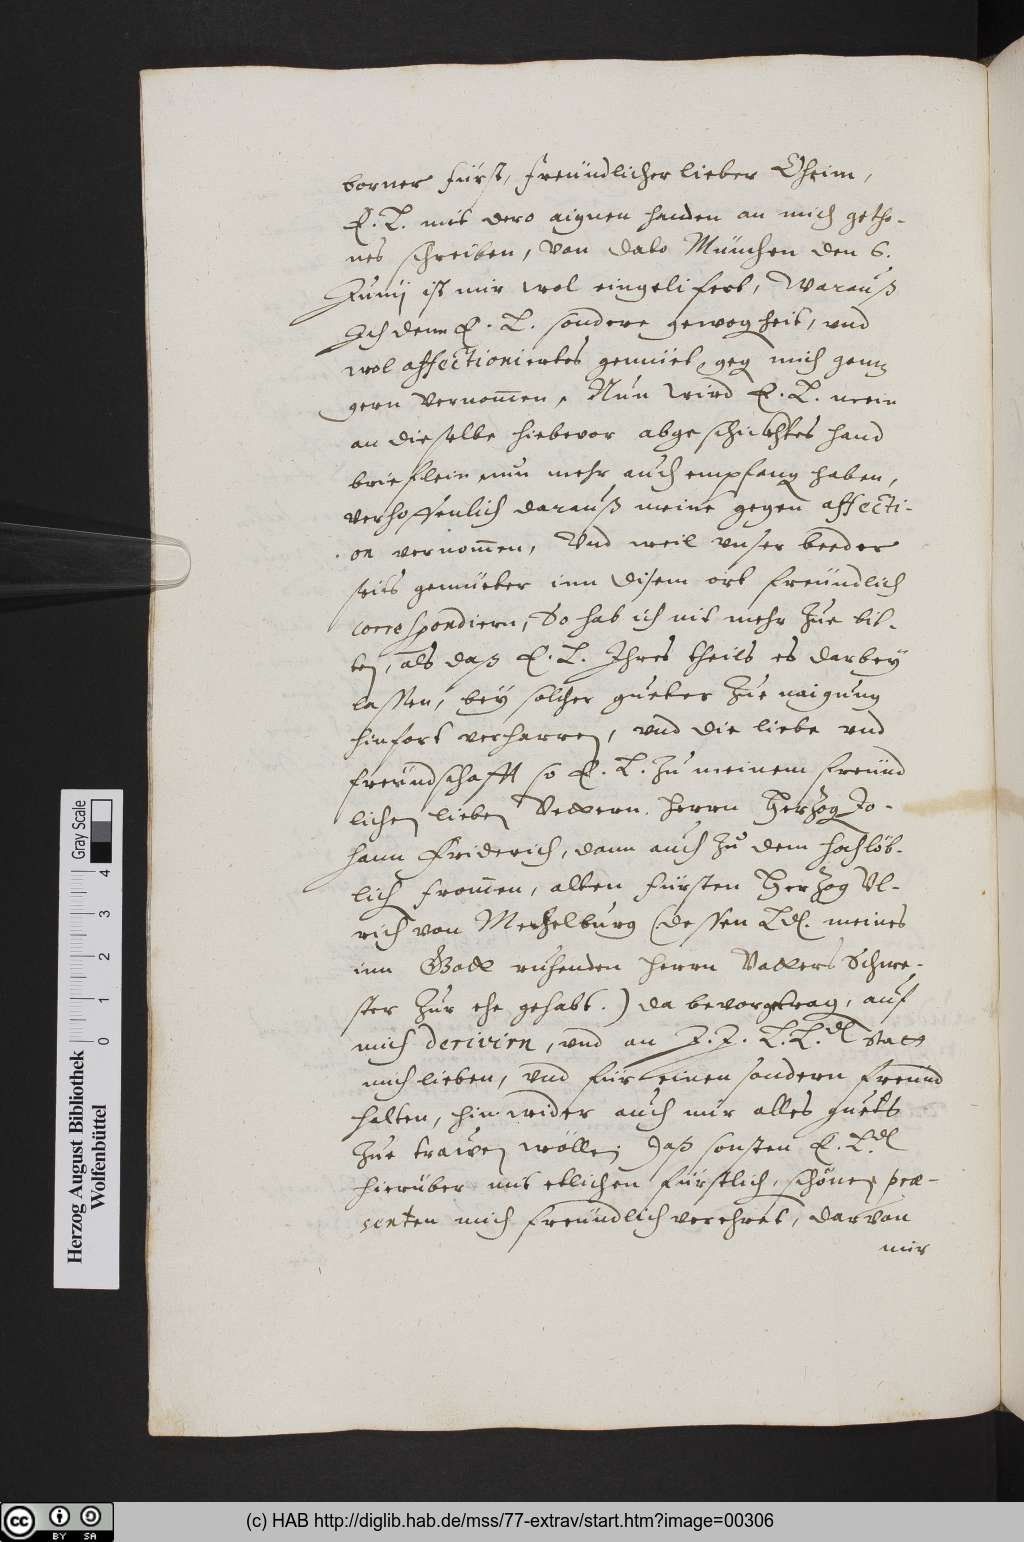 borner Fürst, freündlicher lieber Oheim,
E. L. mit dero aignen handen an mich getho-
nes schreiben, von dato München den 6.
Junij ist mir wol eingelifert, Warauß
Ich denn E. L. sondere gewogheit, vnd
wol affectioniertes gemüet, geg mich ganz
gern vernom̄en, Nun wird E. L. mein
an dieselbe hiebevor abgeschickhtes hand
brieflein nun mehr auch empfang haben,
verhoffenlich darauß meine gegen affecti-
on vernom̄en, Vnd weil vnser beeder
seits gemüeter inn disem ort freündlich
correspondiern, So hab ich nit mehr Zue bit-
ten, als daß E. L. Ihres theils es darbey
lassen, bey solcher gueter Zue naigung
hinfort verharren, vnd die liebe vnd
freündschafft so E. L. Zu meinem freünd
lichen lieben Vettern. Herrn Herzog Jo-
hann Friderich, dann auch Zu dem hochlöb-
lich from̄en, alten Fürsten Herzog Ul-
rich von Mechelburg (dessen Ld. meines
inn Gott ruhenden Herrn Vatters Schwe-
ster Zur ehe gehabt.) da bevor getrag, auf
mich derivirn, vnd an J. J. L. L.d statt
mich lieben, vnd für einen sondern freünd
halten, hinwider auch mir alles guets
Zue trawen wöllen; Daß sonsten E. L.d
hierüber mit etlichen fürstlich, schönen præ-
senten mich freündlich verehret, darvon
mir
Gray Scale
0 1 2 3 4
Herzog August Bibliothek
Wolfenbüttel
(c) HAB http://diglib.hab.de/mss/77-extrav/start.htm?image=00306
cc BY SA